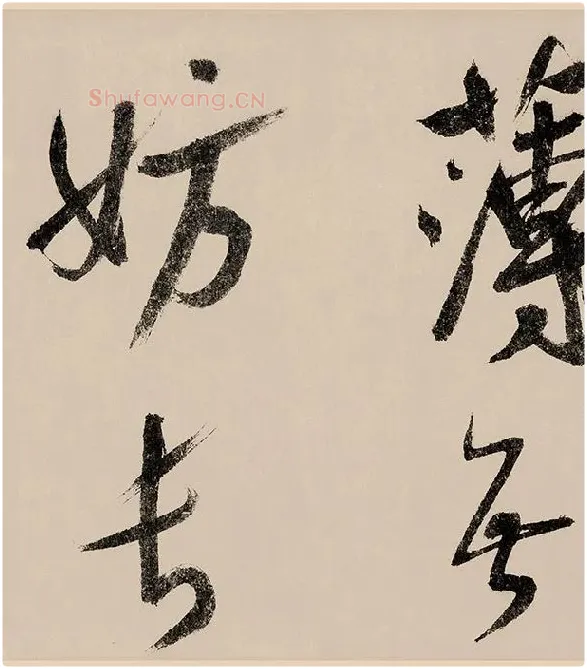 薄無
妨長
Shufawang.CN